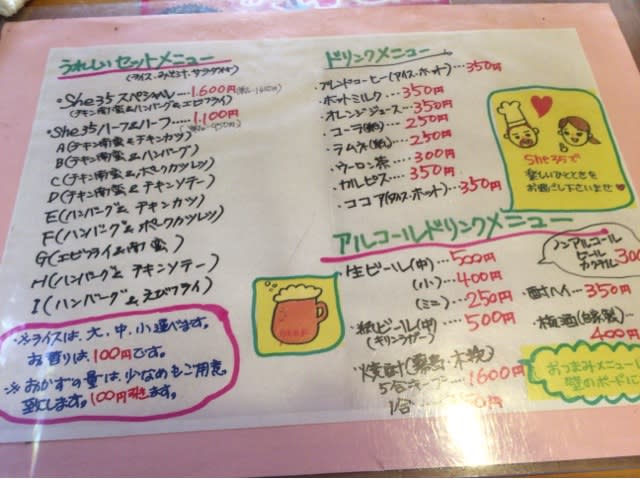 うれしいセットメニュー
(ライス・みそ汁・サラダ付き)
・She35スペシャル…1,600円
(チキン南蛮&ハンバーグ&エビフライ)
・She35ハーフ&ハーフ……1,100円
A(チキン南蛮&チキンカツ)
B(チキン南蛮&ハンバーグ)
C(チキン南蛮&ポークカツレツ)
D(チキン南蛮&チキンソテー)
E(ハンバーグ&チキンカツ)
F(ハンバーグ&ポークカツレツ)
G(エビフライ&南蛮)
H(ハンバーグ&チキンソテー)
I(ハンバーグ&えびフライ)
※ライスは、大、中、小選べます。
お替りは100円です。
※おかずの量は、少なめもご用意
致します。100円引きます。
ドリンクメニュー
・ブレンドコーヒー(アイス・ホット)…350円
・ホットミルク…350円
・オレンジジュース…350円
・コーラ(瓶)…250円
・ラムネ(瓶)…250円
・ウーロン茶…300円
・カルピス…350円
・ココア(アイス・ホット)…350円
She35で
楽しいひとときを
お過ごし下さいませ♥
アルコールドリンクメニュー
・生ビール(中)…500円
(小)…400円
(ミニ)…250円
・瓶ビール(中)…500円
(キリンラガー)
・焼酎(霧島・木挽)
5合キープ…1600円
1合
BEER
ノンアルコール
ビール
カクテル
・酎ハイ…350円
・梅酒(自家製)…
400円
おつまみメニューは
壁のボードに